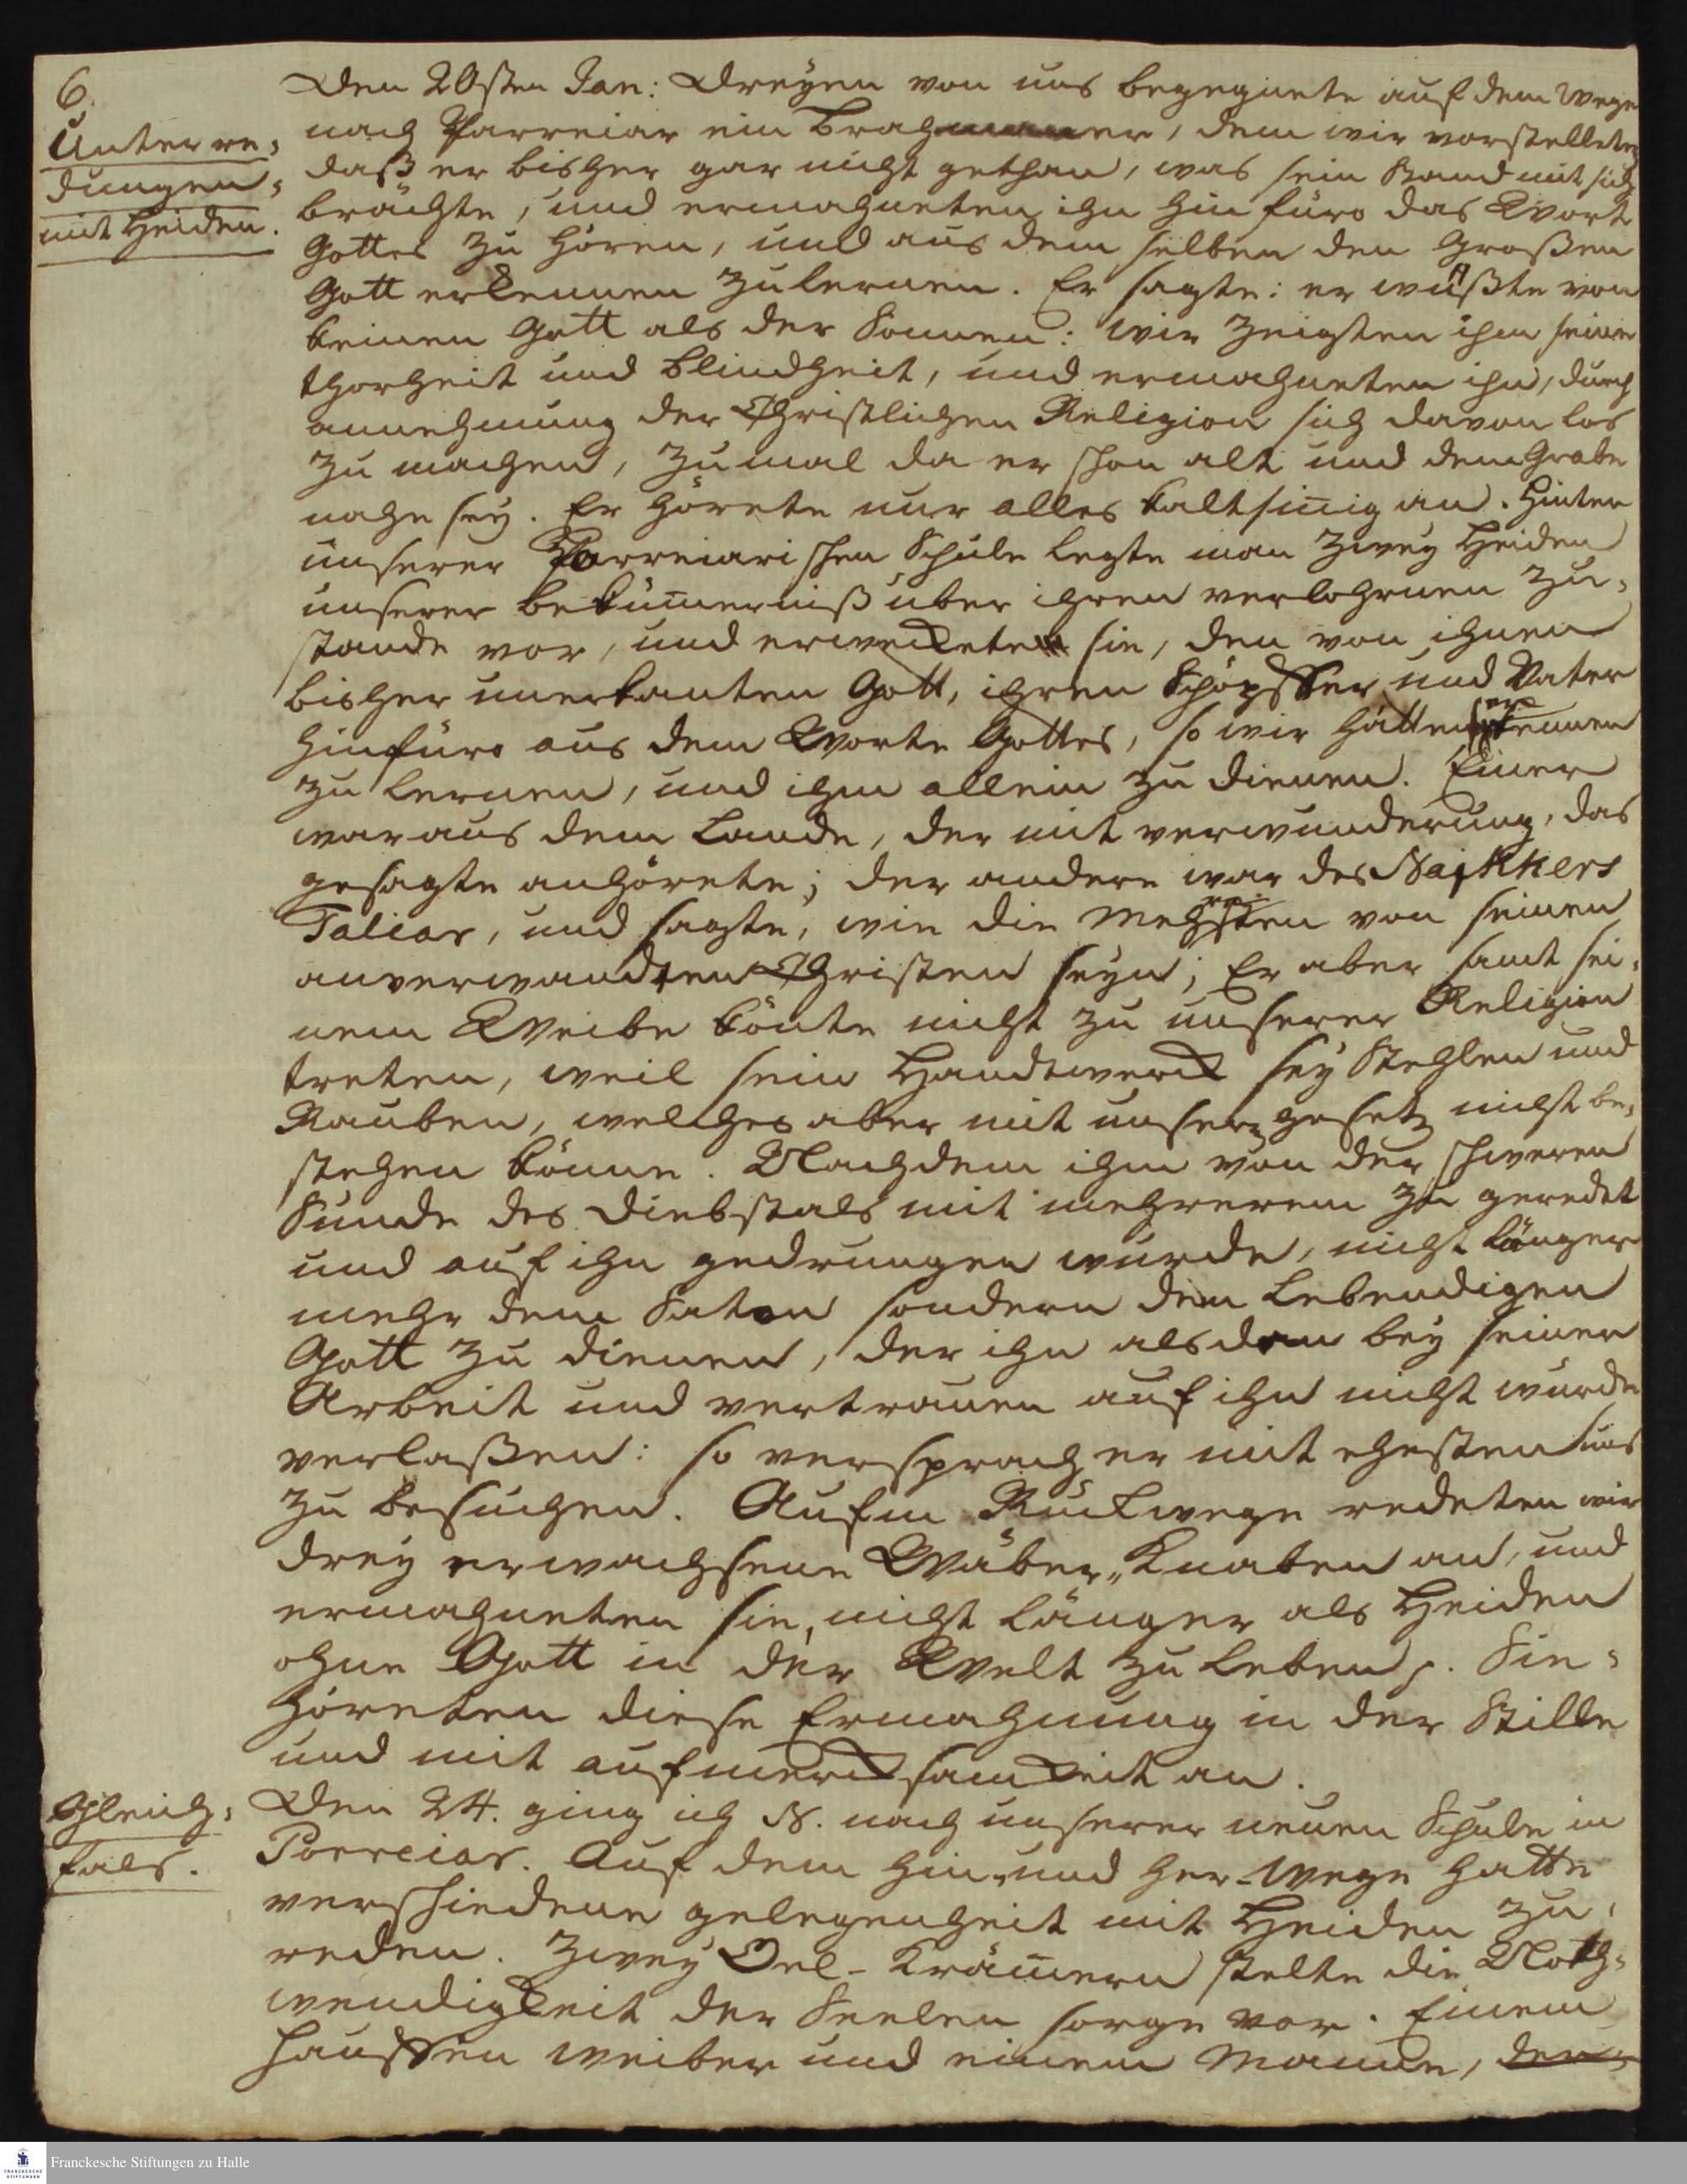 6.
Unterre-
dungen
mit Heiden.
Den 20sten Jan: Dreyen von uns begegnete auf dem Wege
nach Parreiar ein Braghmaner, dem wir vorstelleten
daß er bisher gar nicht gethan, was sein Stand mit sich
brächte, und ermahneten ihn hinfüro das Wort
Gottes zu hören, und aus dem selben den Großen
Gott erkennen zulernen. Er sagte: er wüßte von
keinen Gott als der Sonnen: wir zeigten ihm seine
thorheit und blindheit, und ermahneten ihn, durch
annehmung der Christlichen Religion sich davon los
zu machen, zumal da er schon alt und dem Grabe
nahe sey. Er hörete nur alles kaltsin̄ig an. Hinter
unserer Parreiarischen Schule legte man zwey Heiden
unserer bekūmerniß über ihren verlohrnen Zu-
stande vor, und erweckete sie, den von ihnen
bisher unerkanten Gott, ihren Schöpffer und Vater
hinfüro aus dem Worte Gottes, so wir hätten, erkennen
zu lernen, und ihm allein zu dienen. Einer
war aus dem Lande, der mit verwunderung, das
gesagte anhörete; der andere war des Naikkers
Taliar, und sagte, wie die mehresten von seinen
anverwandten Christen seyn; Er aber samt sei-
nem Weibe könte nicht zu unserer Religion
treten, weil sein Handtwerck sey Stehlen und
Rauben, welches aber mit unserm gesetz nicht be-
stehen könne. Nachdem ihm von der schweren
Sünde des Diebstals mit mehrerem zu geredet
und auf ihn gedrungen wurde, nicht länger
mehr dem Satan sondern dem Lebendigen
Gott zu dienen, der ihn alsdan bey seiner
Arbeit und vertrauen auf ihn nicht würde
verlaßen: so versprach er mit ehesten uns
zu besuchen. Aufm Rückwege redeten wir
drey erwachsene Wäber-Knaben an, und
ermahneten sie, nicht länger als Heiden
ohne Gott in der Welt zu leben p. Sie
höreten diese Ermahnung in der Stille
und mit aufmercksamkeit an.
Gleich-
fals.
Den 24. ging ich N. nach unserer neuen Schule in
Porreiar. Auf dem hin- und her-Wege hatte
verschiedene gelegenheit mit Heiden zu
reden. Zwey Oel-Krām̄ern stelte die Noth-
wendigkeit der Seelen sorge vor. Einem
Hauffen weiber und einem Manne, der
Franckesche Stiftungen zu Halle